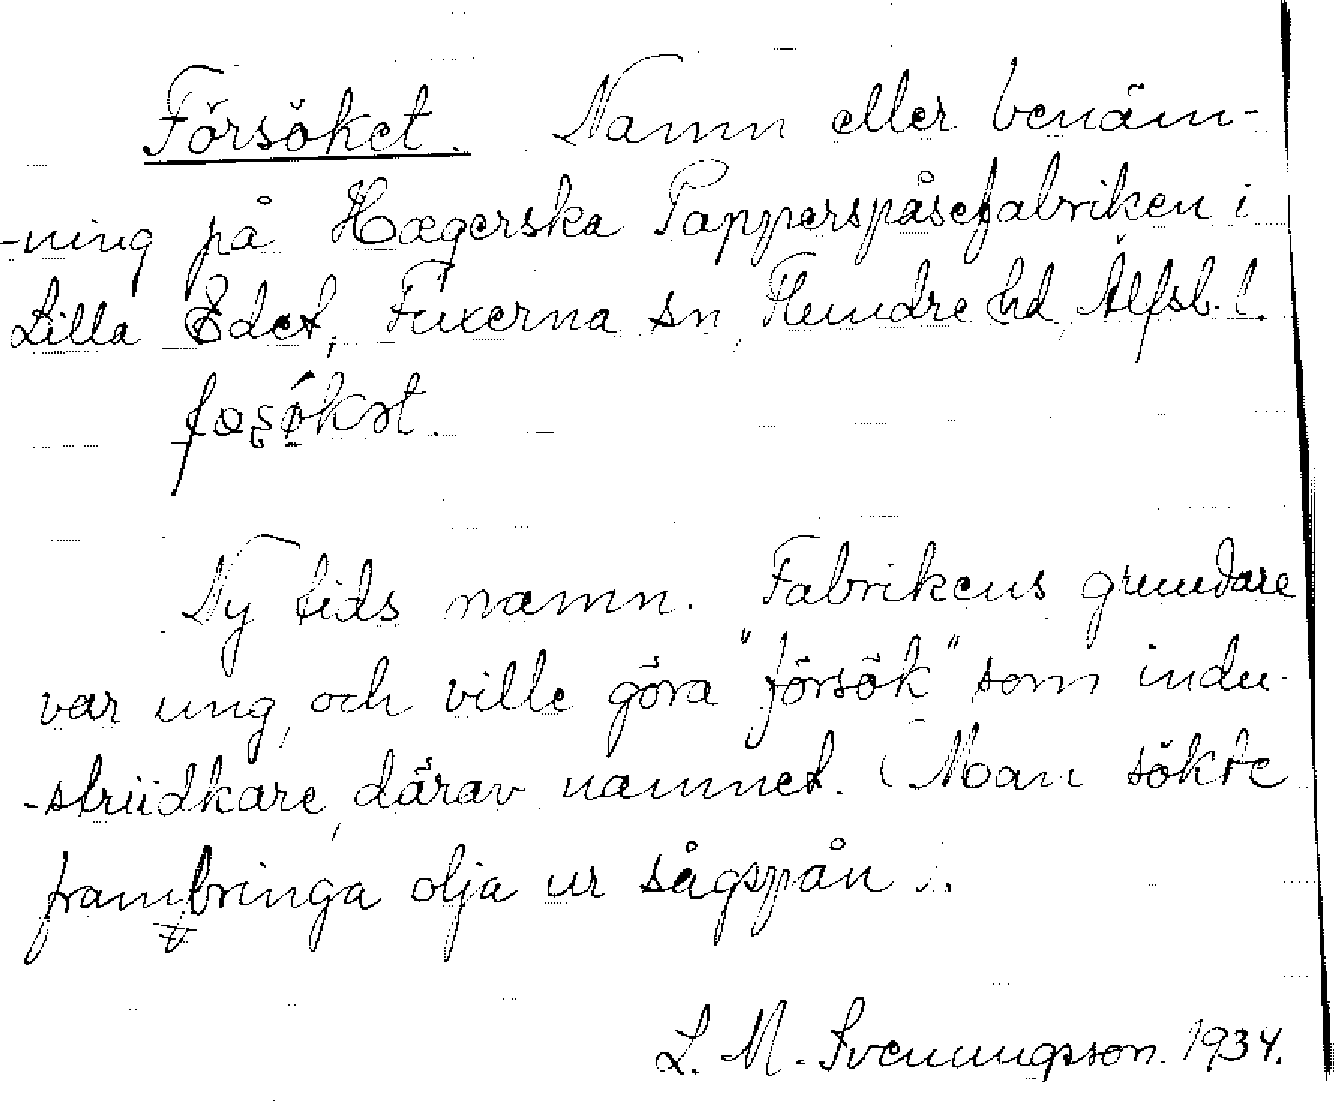 Försöket. Namn eller benäm-
-ning på Hægerska Papperspåsefabriken i
Lilla Edet, Fuxerna sn, Flundre hd, Älfsb. l.
Ny tids namn. Fabrikens grundare
var ung, och ville göra "försök" som indu-
-striidkare, därav namnet. (Man sökte
frambringa olja ur sågspån).
L. M. Svenungsson. 1934.